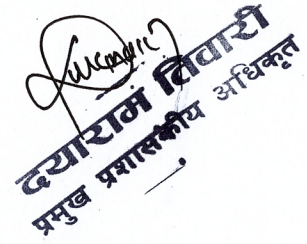 दयाराम तिवारी
प्रमुख प्रशासकीय अधिकृत